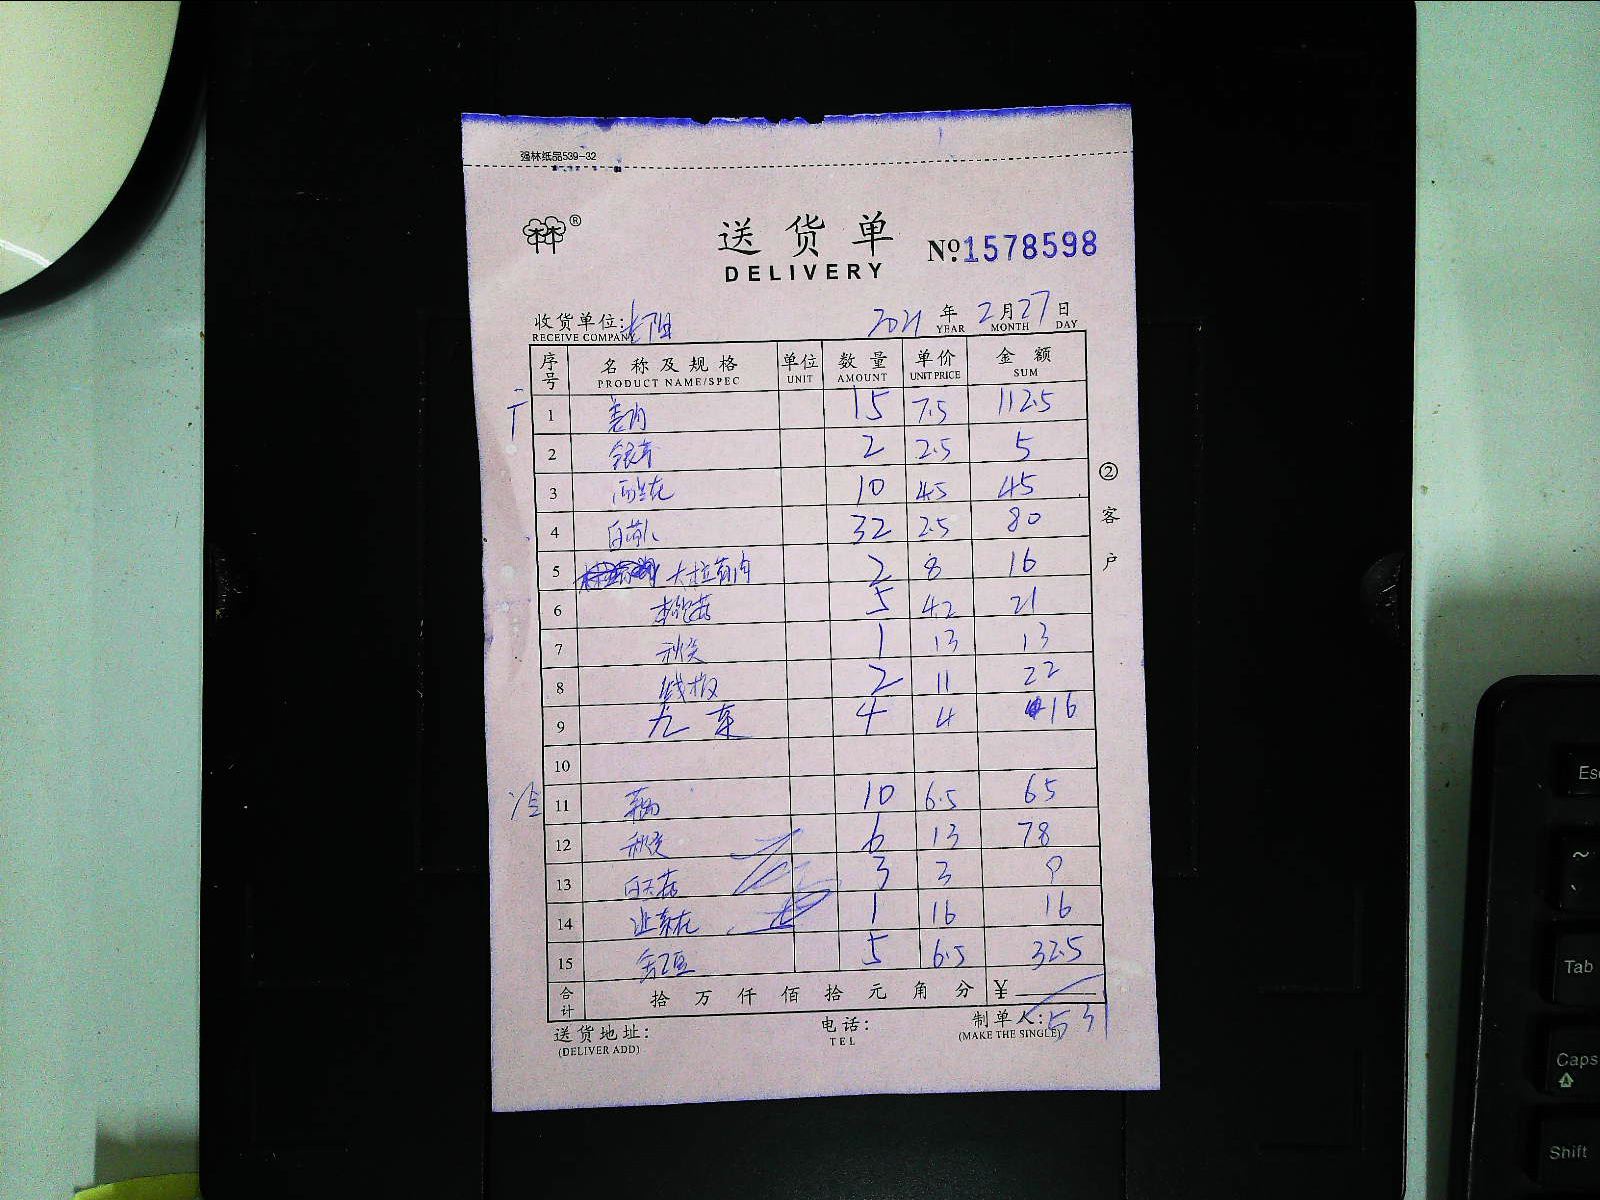 强林纸品539-32
®
送货单
DELIVERY
№:1578598
收货单位:
RECEIVE COMPANY
2021 年 2 月 27 日
YEAR MONTH DAY
序号 名称及规格 单位 数量 单价 金额
PRODUCT NAME/SPEC UNIT AMOUNT UNIT PRICE SUM
1 姜肉 15 7.5 112.5
2 银芽 2 2.5 5
3 西兰花 10 4.5 45
4 32 2.5 80
5 2 8 16
6 5 4.2 21
7 秋葵 1 13 13
8 2 11 22
9 4 4 16
10
冷
11 藕 10 6.5 65
12 秋葵 6 13 78
13 3 3 9
14 1 16 16
15 5 6.5 32.5
合计 拾 万 仟 佰 拾 元 角 分 ¥
531
送货地址:
(DELIVER ADD)
电话:
TEL
制单人:
(MAKE THE SINGLE)
②客户
Esc
~
Tab
Caps
Shift